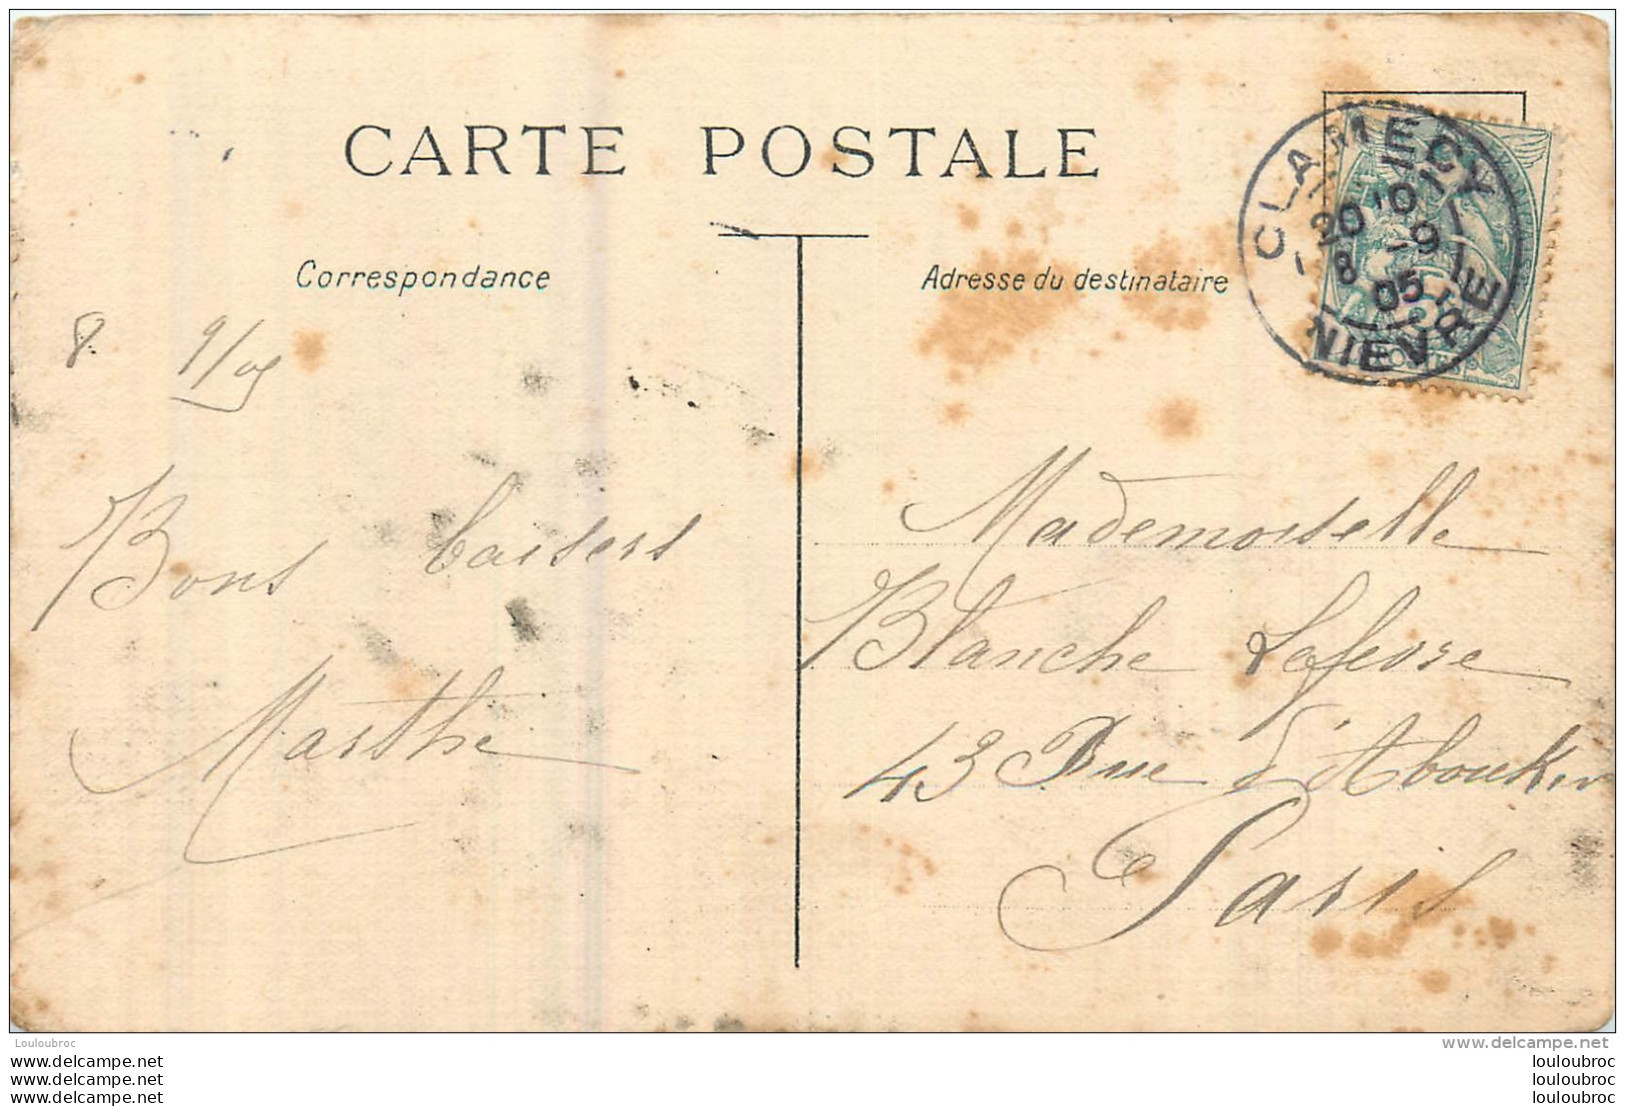 CARTE POSTALE
Correspondance
Adresse du destinataire
CLAMECY
20 10
8 -9
05
NIEVRE
8 9/05
Bons baisers
Marthe
Mademoiselle
Blanche
43 Rue d'Aboukir
Paris
Louloubroc
www.delcampe.net
www.delcampe.net louloubroc
www.delcampe.net louloubroc
www.delcampe.net louloubroc